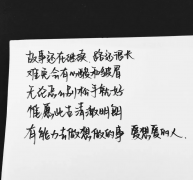 故事还在继续 路还很长
难免会有心酸和皱眉
无论高如别松手就好
惟愿此去清澈明朗
有能力去做想做的事 爱想爱的人.